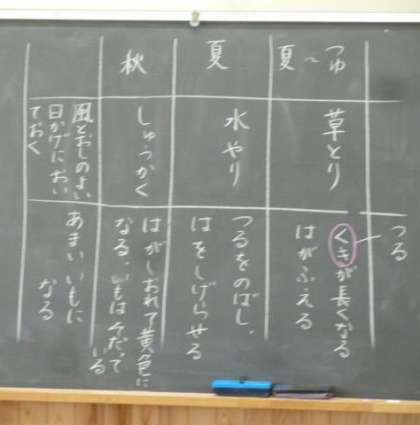 つる
つゆ〜夏
草とり
くきが長くなる
はがふえる
夏
水やり
つるをのばし、
はをしげらせる
秋
しゅうかく
はがしおれて黄色に
なる。いもは
いる
風とおしのよい
日かげにおい
ておく
あまいいもに
なる